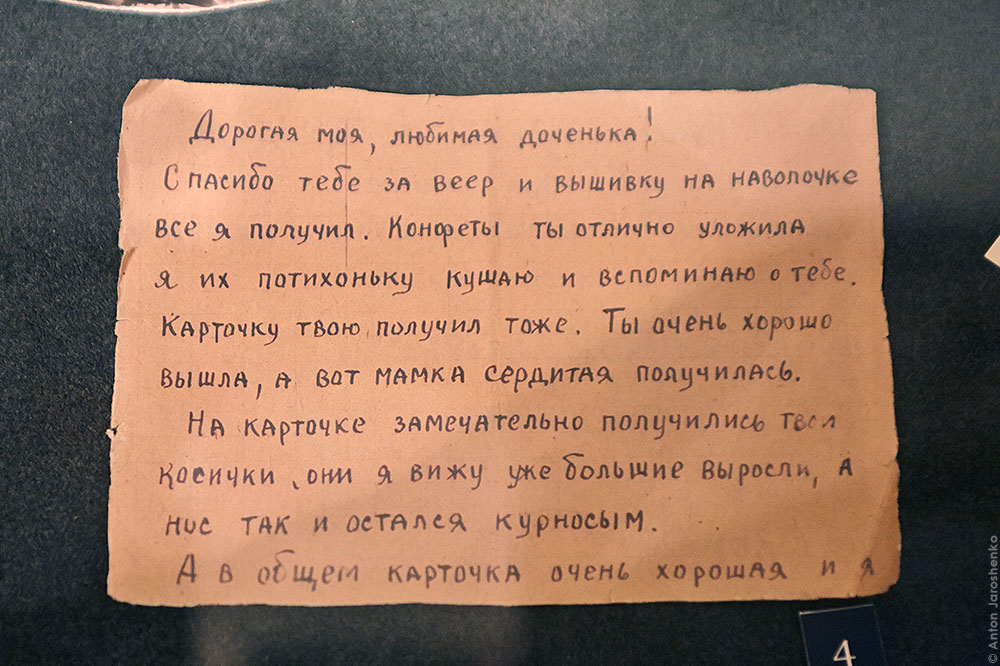 Дорогая моя, любимая доченька!
Спасибо тебе за веер и вышивку на наволочке
все я получил. Конфеты ты отлично уложила
я их потихоньку кушаю и вспоминаю о тебе.
Карточку твою получил тоже. Ты очень хорошо
вышла, а вот мамка сердитая получилась.
На карточке замечательно получились твои
косички, они я вижу уже большие выросли, а
нос так и остался курносым.
А в общем карточка очень хорошая и я
4
© Anton Jaroshenko